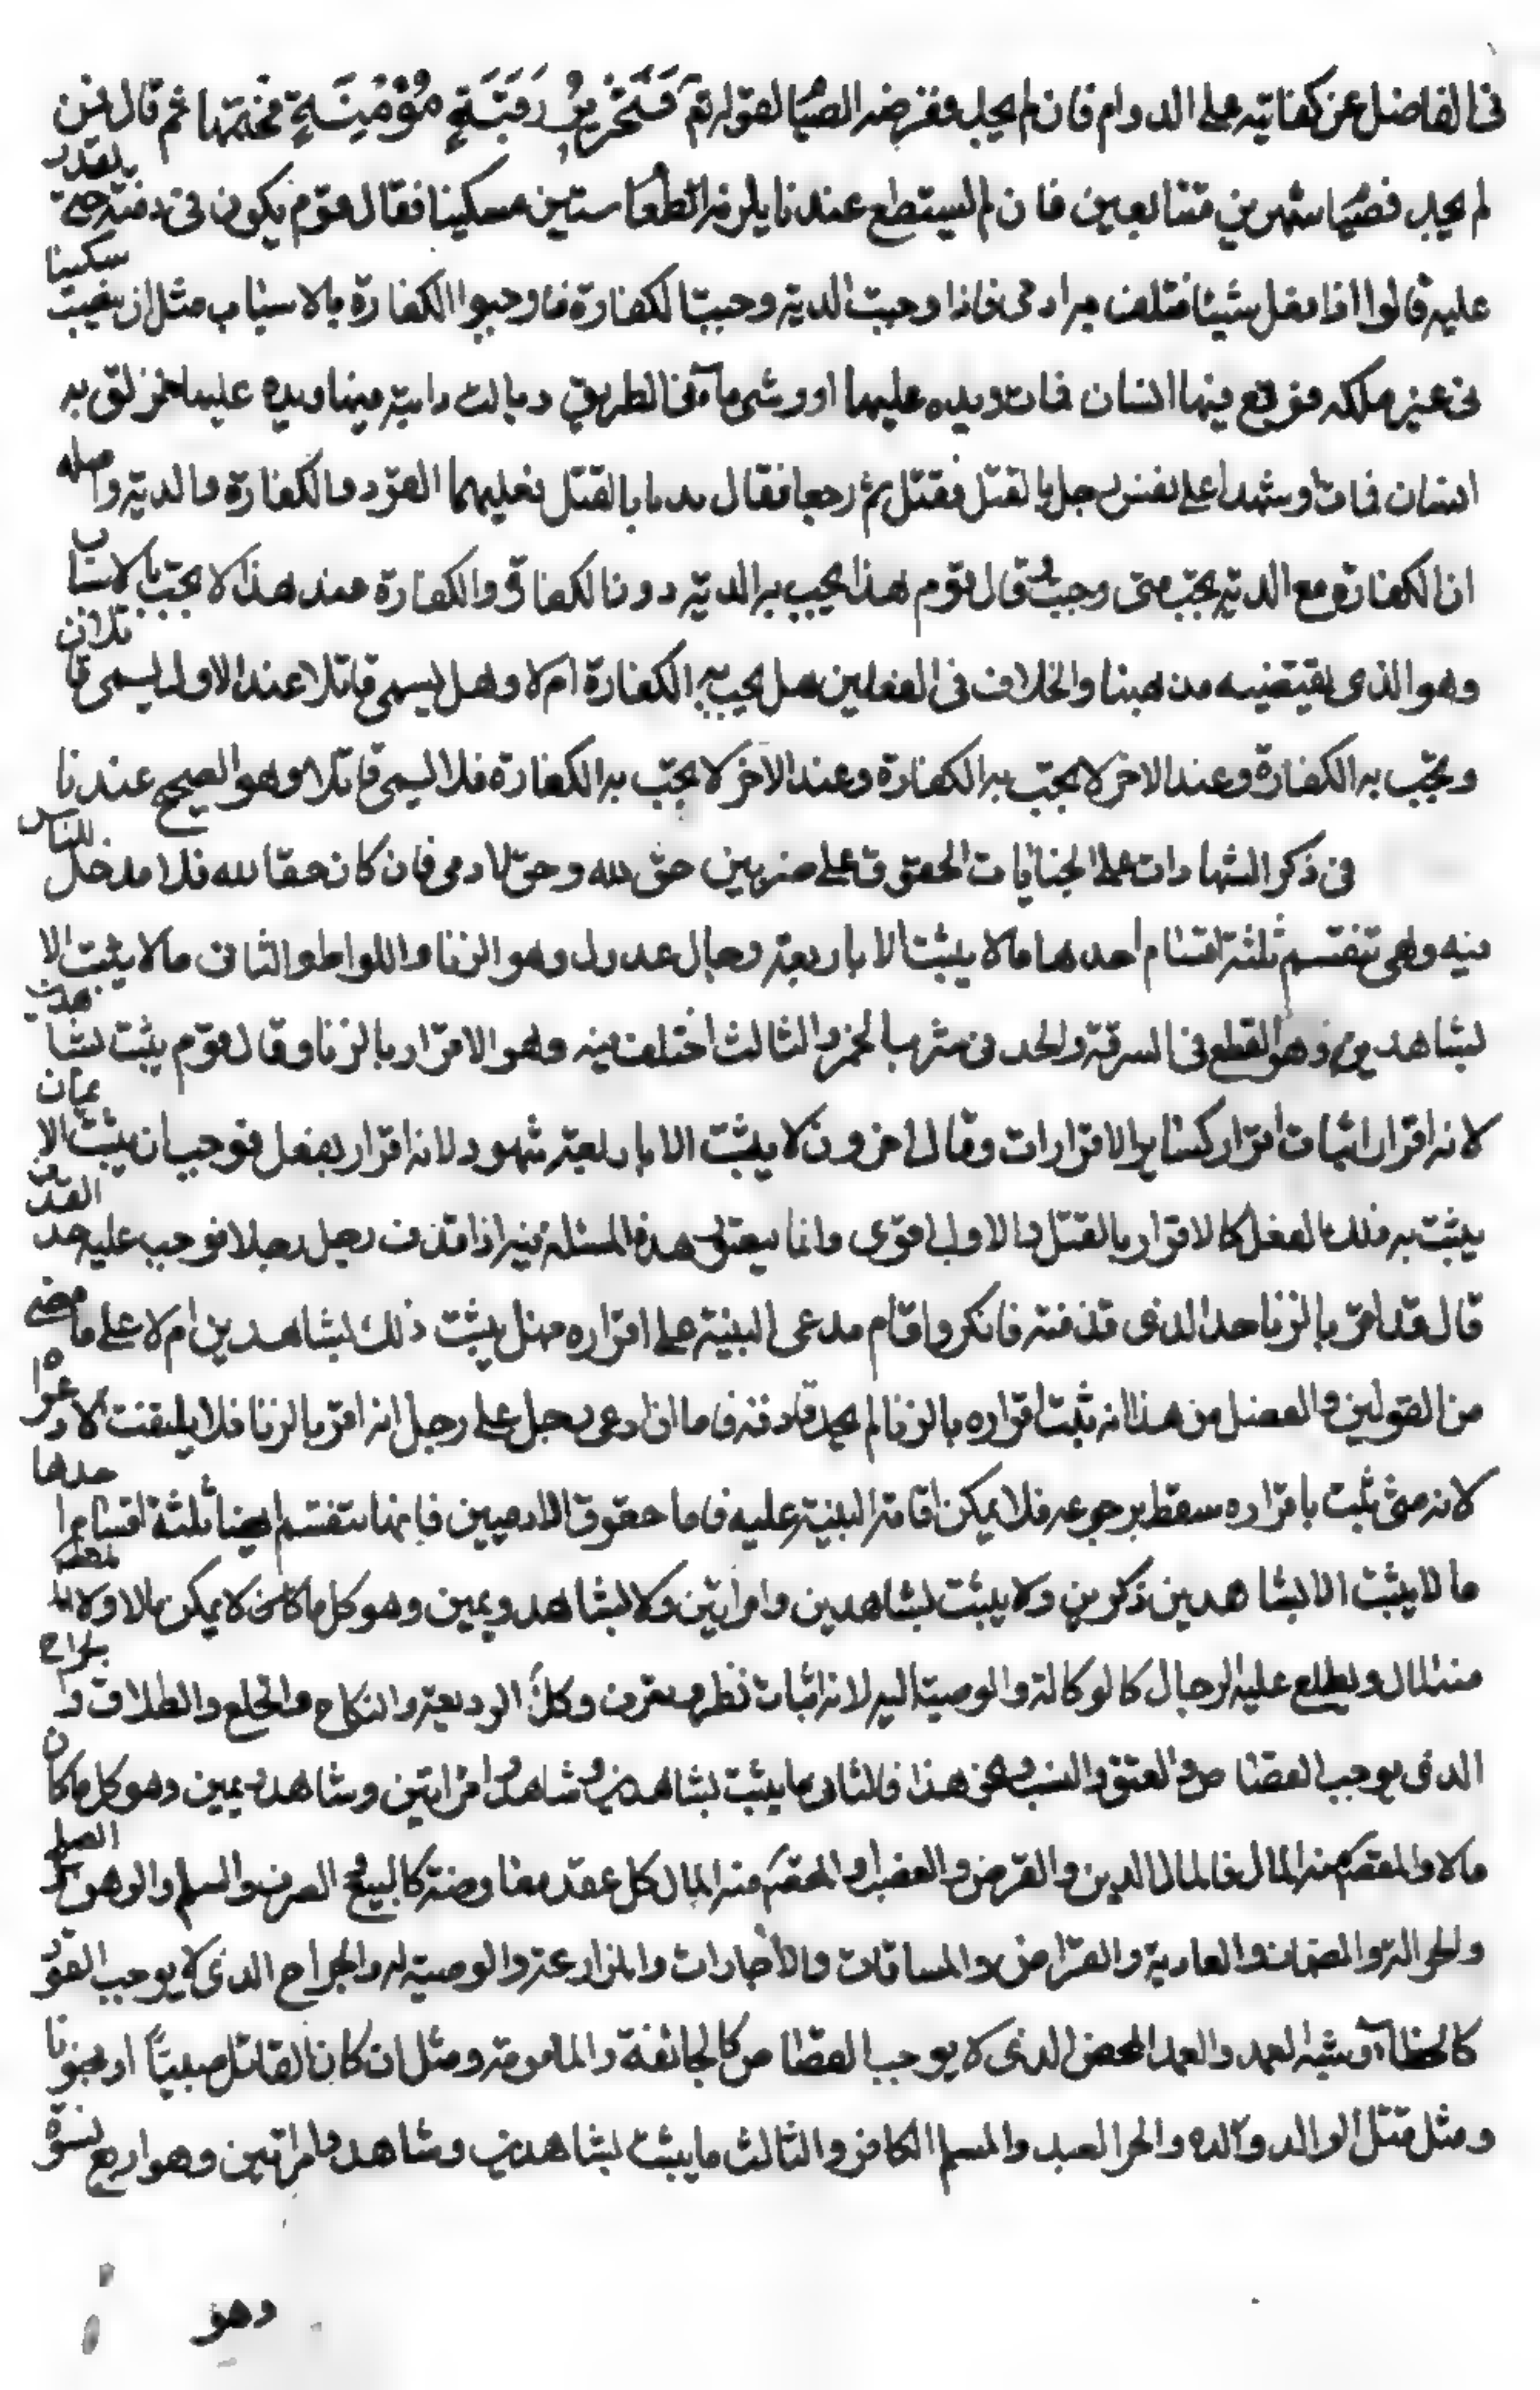 فى الفاضل عن كفايته على الدوام فان لم يجد ففرضه الصيا لقوله تع فَتَحْرِيرُ رَقَبَةٍ مُؤْمِنَةٍ ثم قال فمن
لم يجد فصيا شهرين متتابعين فان لم يستطع عندنا يلزمه اطعا ستين مسكينا فقال قوم يكون فى ذمته حتى يقدر
عليه قالوا اذا فعل شيئا فتلف به ادمى فاذا وجبت الدية وجبت الكفارة فاوجبوا الكفارة بالاسباب مثل ان ينصب سكينا
فى غير ملكه فوقع فيها انسان فمات ويده عليها او رش ماء فى الطريق او بالت دابته فيها ويده عليها فزلق به
انسان فمات او شهدا على نفس رجل بالقتل فقتل ثم رجعا فقال عمدنا بالقتل فعليهما القود والكفارة والدية واصله
ان الكفارة مع الدية يجب متى وجبت وقال قوم هذا يجب به الدية دون الكفارة والكفارة عند هذا لا يجب بالاسباب
وهو الذى يقتضيه مذهبنا والخلاف فى الفصلين هل يجب به الكفارة ام لا وهل يسمى قاتلا عند الاول يسمى قاتلا
ويجب به الكفارة وعند الاخر لا يجب به الكفارة وعند الاخر لا يجب به الكفارة فلا يسمى قاتلا وهو الصحيح عندنا
فى ذكر الشهادات على الجنايات الحقوق على ضربين حق لله وحق لادمى فان كان حقا لله فلا مدخل للناس
فيه وهى تنقسم ثلثة اقسام احدها ما لا يثبت الا باربعة رجال عدول وهو الزنا واللواط والثانى ما لا يثبت الا
بشاهدين وهو القطع فى السرقة والحد فى شرب الخمر والثالث اختلف فيه وهو الاقرار بالزنا وقال قوم يثبت بشاهدين
لانه اقرار اثبات اقرار كساير الاقرارات وقال اخرون لا يثبت الا باربعة شهود لانه اقرار بفعل فوجب ان يثبت الا بما
يثبت به ذلك الفعل كالاقرار بالقتل والاول اقوى وانما يتعلق هذه المسئلة فيه اذا قذف رجل رجلا فوجب عليه حد القذف
قال قد اقر بالزنا حد الذى قذفته فانكر واقام مدعى البينة على اقراره فهل يثبت ذلك بشاهدين ام لا على ما مضى
من القولين والفصل من هذا انه يثبت اقراره بالزنا لم يحد قاذفه فاما ان ادعى رجل على رجل انه اقر بالزنا فلا يلتفت لدعواه
لانه متى ثبت باقراره سقط برجوعه فلا يمكن اقامة البينة عليه فاما حقوق الادميين فانها تنقسم ايضا ثلثة اقسام احدها
ما لا يثبت الا بشاهدين ذكرين ولا يثبت بشاهدين وامراتين ولا بشاهد ويمين وهو كل ما كان لا يمكن مالا ولا المقصد
منه المال ويطلع عليه الرجال كالوكالة والوصية اليه لانه اثبات نظر وتصرف وكك الوديعة والنكاح والخلع والطلاق والجراح
الذى يوجب القصاص والعتق والنسب ونحو هذا فالثانى ما يثبت بشاهدين وشاهد وامراتين وشاهد ويمين وهو كل ما كان
مالا والمقصد منه المال فالمال الدين والقرض والغصب والمقصد منه المال كل عقد معاوضة كالبيع الصرف والسلم والرهن والصلح
والحوالة والضمان والعارية والقراض والمساقات والاجارات والمزارعة والوصية له والجراح الذى لا يوجب القود
كالخطاء وشبه العمد والعمد المحض الذى لا يوجب القصاص كالجائفة والمامومة ومثل ان كان القاتل صبيا او مجنونا
ومثل قتل الوالد ولده والحر العبد والمسلم الكافر والثالث ما يثبت بشاهدين وشاهد وامراتين وهو اربع نسوة
وهو